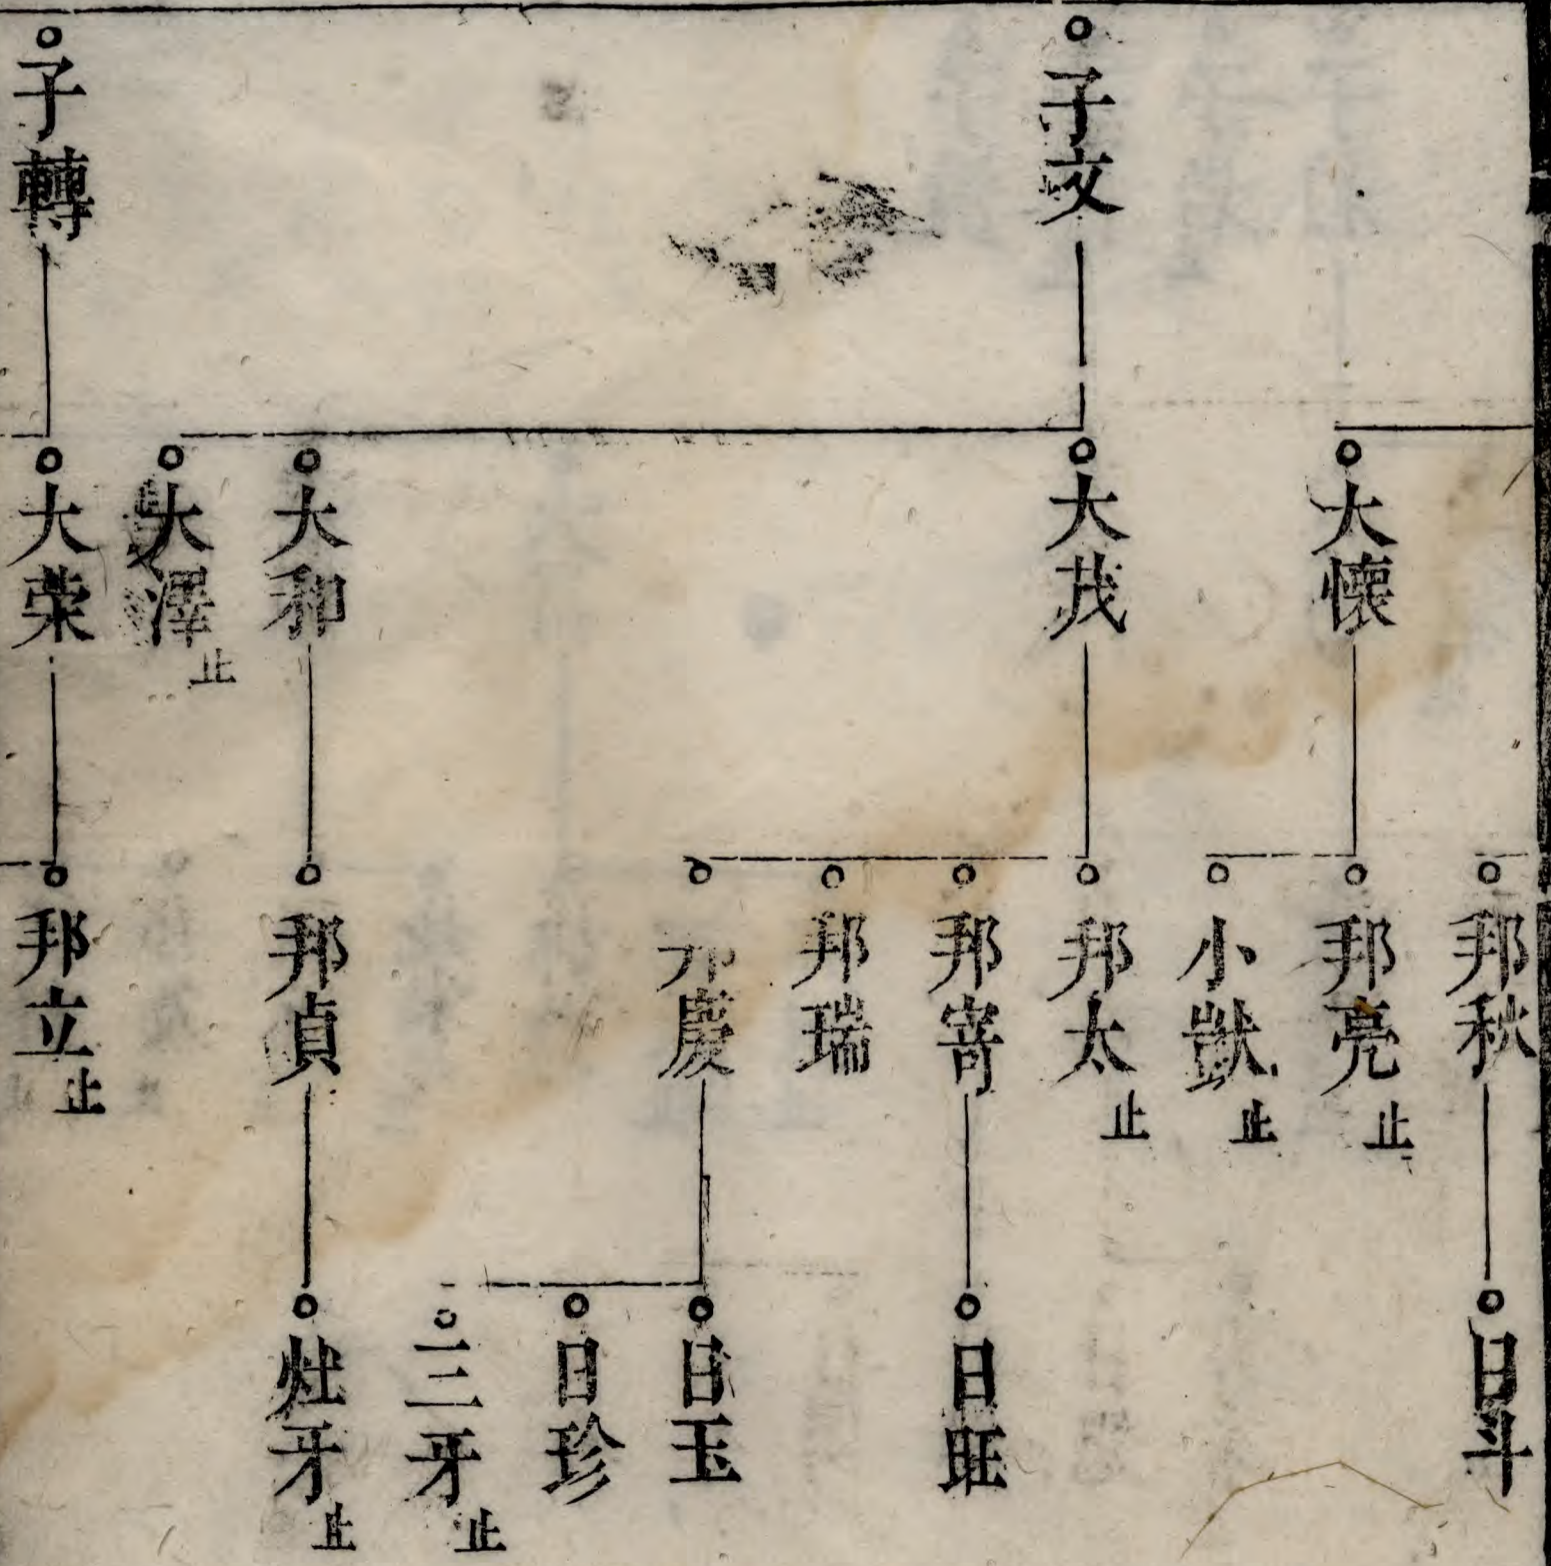 子文
子轉
大懷
大茂
大和
大澤止
大荣
邦秋
邦亮止
小獃止
邦太止
邦寄
邦瑞
邦慶
邦貞
邦立止
日斗
日旺
日玉
日珍
三牙止
灶牙止